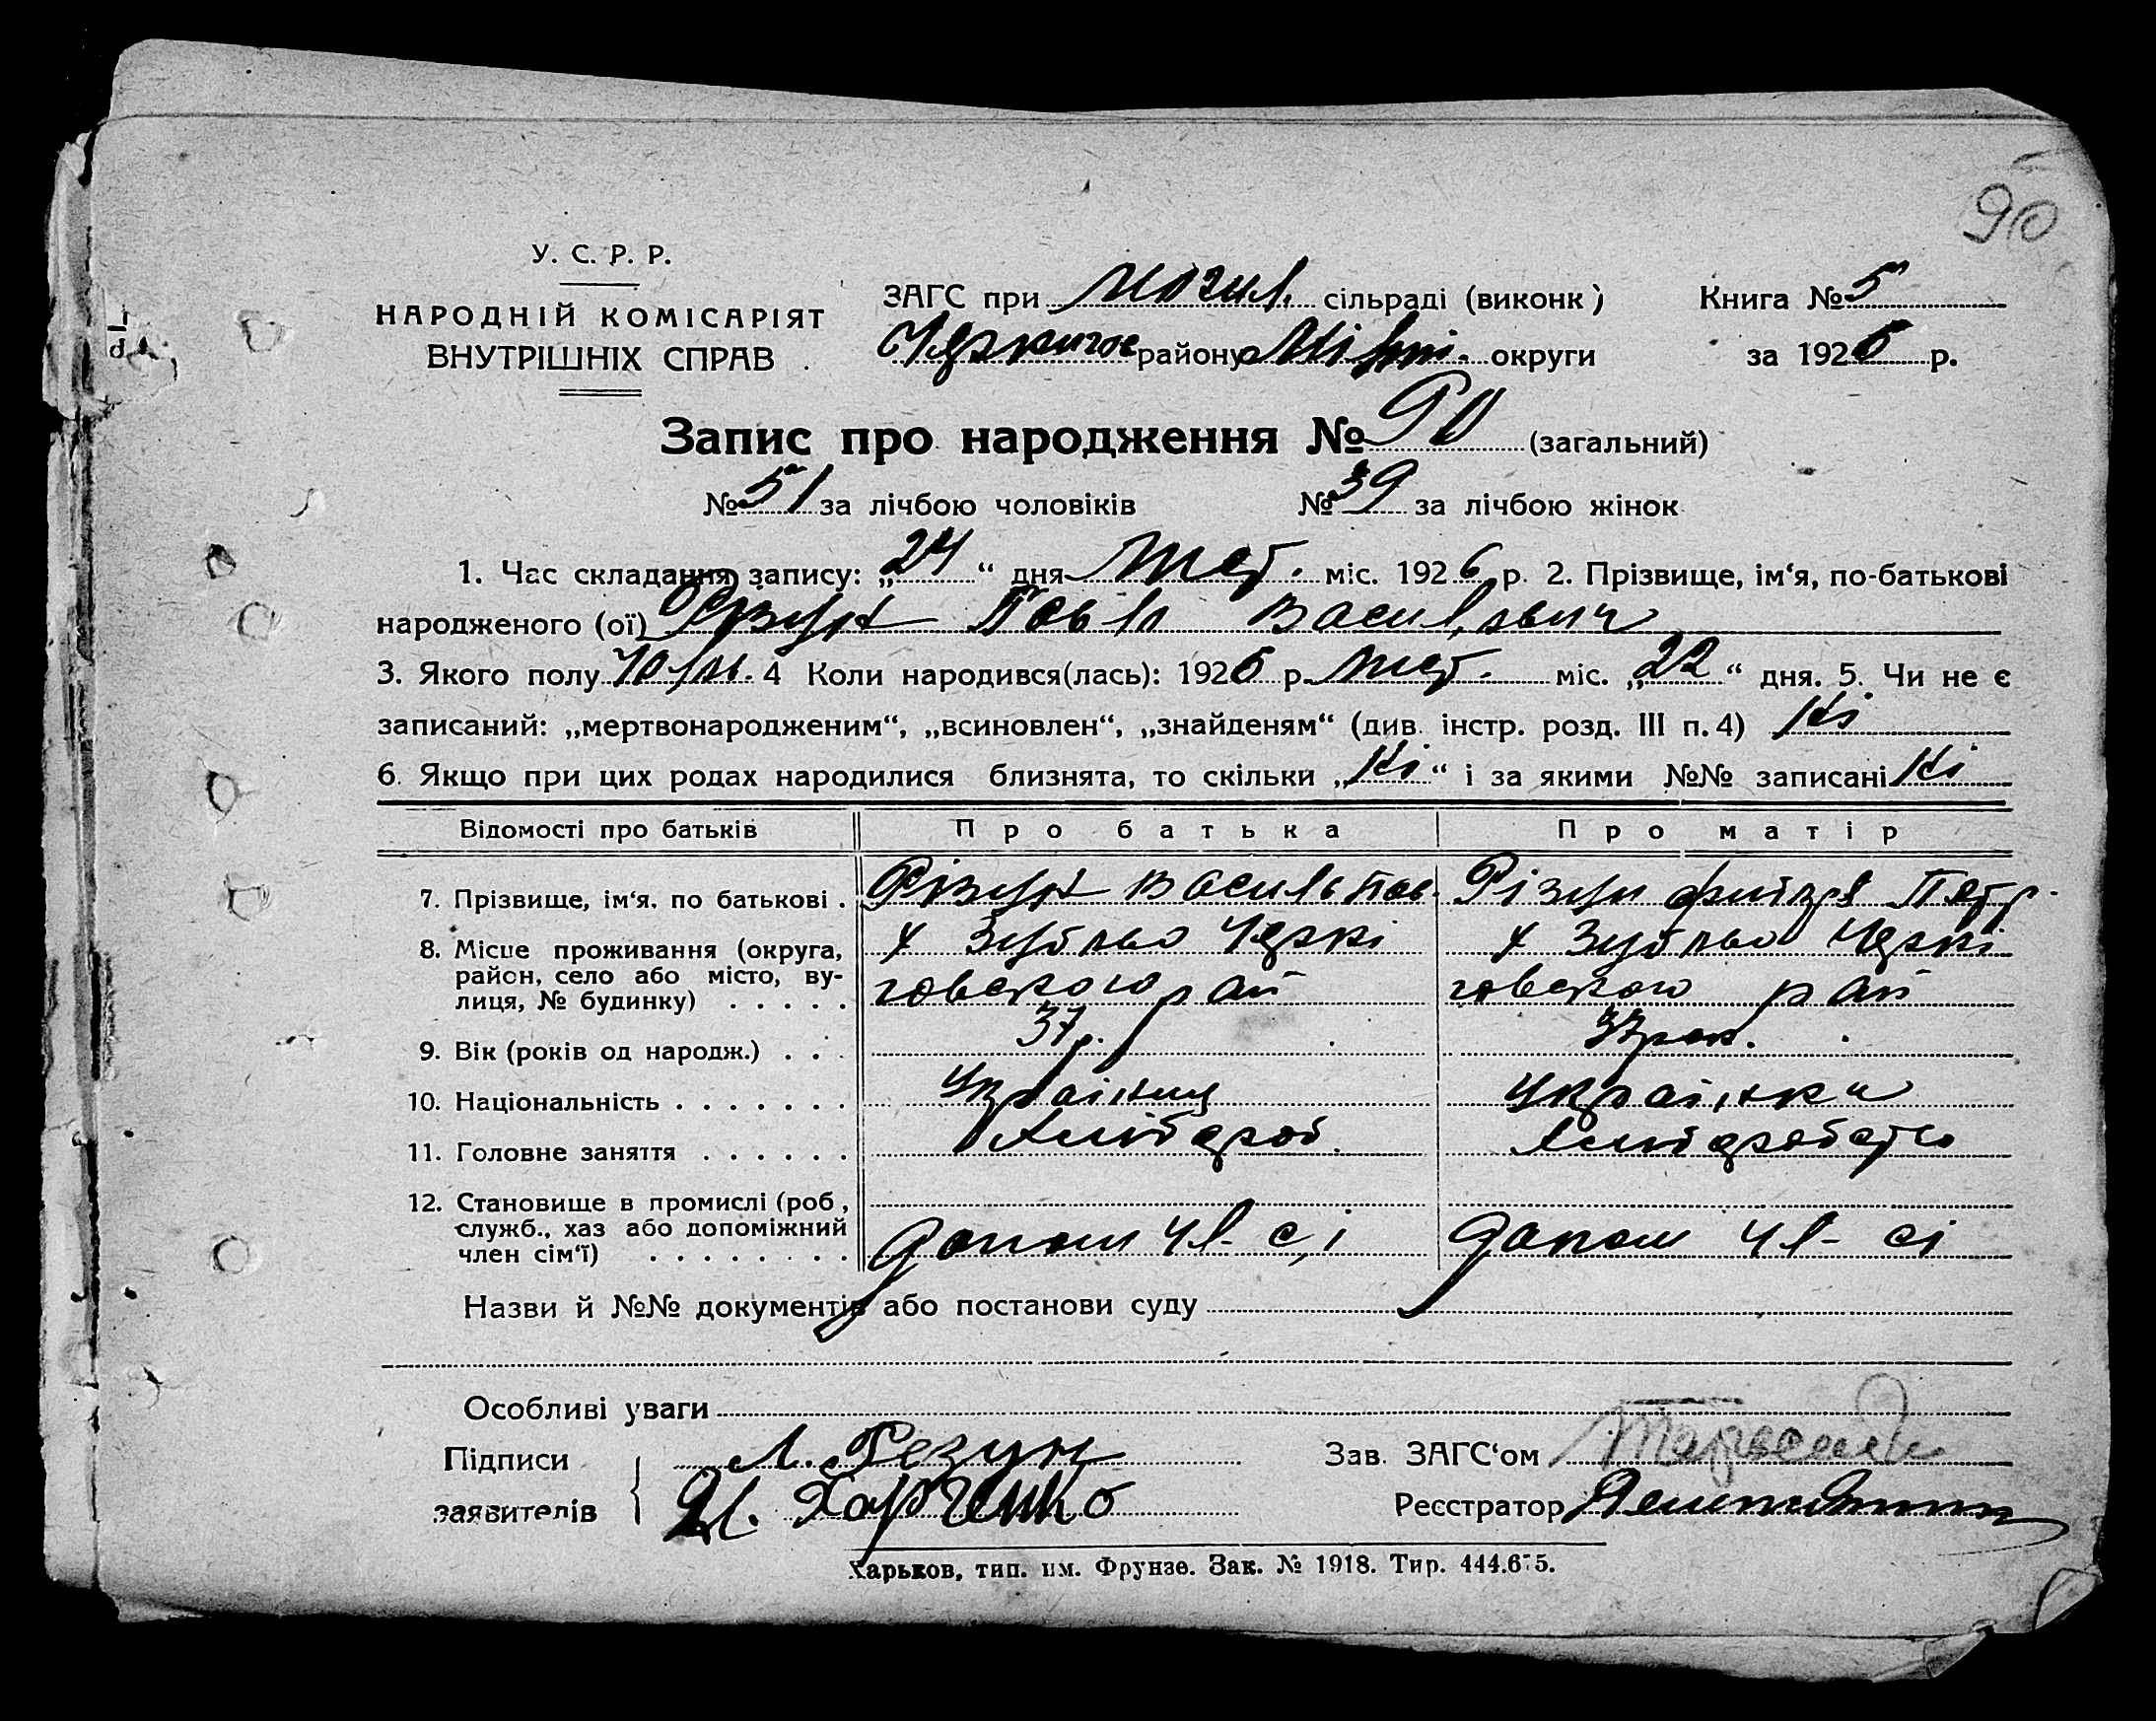 90
У. С. Р. Р.
НАРОДНІЙ КОМІСАРІЯТ
ВНУТРІШНІХ СПРАВ
ЗАГС при Могил. сільраді (виконк)
району округи
Книга № 5
за 1926 р.
Запис про народження № 90 (загальний)
№ 51 за лічбою чоловіків № 39 за лічбою жінок
1. Час складання запису: „24“ дня міс. 1926 р. 2. Прізвище, ім‘я, по-батькові
народженого (ої) Різун Павло Васильович
3. Якого полу чол. 4 Коли народився(лась): 1926 р. міс. „22“ дня. 5. Чи не є
записаний: „мертвонародженим“, „всиновлен“, „знайденям“ (див. інстр. розд. III п. 4) Ні
6. Якщо при цих родах народилися близнята, то скільки „Ні“ і за якими №№ записані Ні
Відомості про батьків Про батька Про матір
7. Прізвище, ім‘я, по батькові . Різун Василь Пав. Різун Петр.
8. Місце проживання (округа, район, село або місто, вулиця, № будинку) . . . . .
говского рай
говского рай
9. Вік (років од народж.) . . . 37 р. рок.
10. Національність . . . . . . . Українец Українка
11. Головне заняття . . . . . . Хлібороб. Хлібороботво
12. Становище в промислі (роб, служб., хаз або допоміжний член сім‘ї) . . . . . . . . допом чл- сі допом чл- сі
Назви й №№ документів або постанови суду
Особливі уваги
Підписи заявителів { Л. Резун
Харченко
Зав. ЗАГС‘ом
Реєстратор
Харьков, тип. им. Фрунзе. Зак. № 1918. Тир. 444.675.